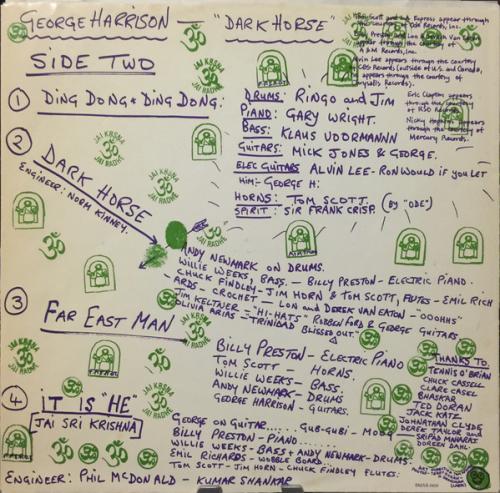 GEORGE HARRISON — "DARK HORSE"
SIDE TWO
Tom Scott and L.A. Express appear through the courtesy of Ode Records, Inc.
Billy Preston and Lon & Derek Van Eaton appear through the courtesy of A&M Records, Inc.
Alvin Lee appears through the courtesy of CBS Records (outside of U.S. and Canada,
appears through the courtesy of Chrysalis Records).
Eric Clapton appears through the courtesy of RSO Records.
Nicky Hopkins appears through the courtesy of Mercury Records.
① DING DONG * DING DONG:
DRUMS: RINGO and JIM
PIANO: GARY WRIGHT.
BASS: KLAUS VOORMANNN
GUITARS: MICK JONES & GEORGE.
ELEC GUITARS ALVIN LEE - RON WOULD IF YOU LET
HIM:- GEORGE H:
HORNS: TOM SCOTT. (BY "ODE")
SPIRIT: SIR FRANK CRISP.
② DARK HORSE
ENGINEER: NORM KINNEY.
ANDY NEWMARK ON DRUMS.
WILLIE WEEKS, BASS. — BILLY PRESTON - ELECTRIC PIANO.
CHUCK FINDLEY - JIM HORN & TOM SCOTT, FLUTES - EMIL RICH
-ARDS - CROCHET — LON and DEREK VAN EATON - "OOOHHS"
JIM KELTNER - "HI-HATS" ROBBEN FORD & GEORGE GUITARS
OLIVIA ARIAS - TRINIDAD BLISSED OUT.
③ FAR EAST MAN
BILLY PRESTON - ELECTRIC PIANO
TOM SCOTT - HORNS.
WILLIE WEEKS - BASS.
ANDY NEWMARK - DRUMS
GEORGE HARRISON - GUITARS.
④ IT IS "HE"
JAI SRI KRISHNA
GEORGE ON GUITAR..... GUB-GUBI - MOOG
BILLY PRESTON - PIANO......
WILLIE WEEKS - BASS + ANDY NEWMARK - DRUMS
EMIL RICHARDS - WOBBLE BOARD...
TOM SCOTT - JIM HORN - CHUCK FINDLEY FLUTES:
ENGINEER: PHIL McDONALD - KUMAR SHANKAR
THANKS TO
TENNIS O'BRIAN
CHUCK CASSELL
CLARE CASEL
BHASKAR
TED DORAN
JACK KATZ
JOHNATHAN CLYDE
DEREK TAYLOR and
SRIPAD MAHARAZ
DOREEN DAHL
JAI KRSNA
ॐ
JAI RADHE